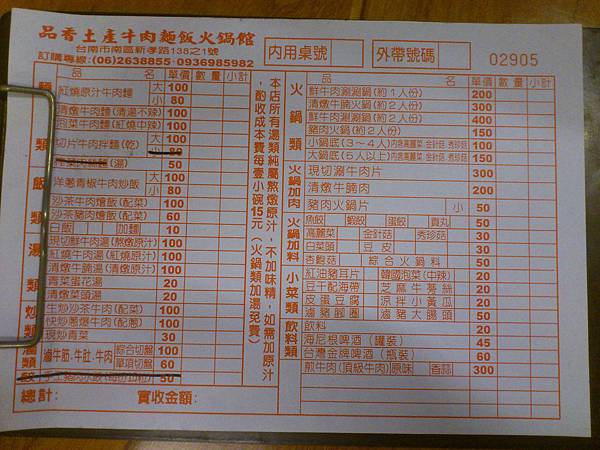 品香土產牛肉麵飯火鍋館
台南市南區新孝路138之1號
訂購專線:(06)2638855 0936985982
內用桌號
外帶號碼
02905
品名 單價 數量 小計
麵類
紅燒原汁牛肉麵 大 100
小 80
清燉牛肉麵(清湯不辣) 100
泡菜牛肉麵(紅燒中辣) 100
切片牛肉拌麵(乾) 大 100
小 80
(湯) 50
飯類
洋蔥青椒牛肉炒飯 大 100
小 80
沙茶牛肉燴飯(配菜) 100
沙茶豬肉燴飯(配菜) 60
白飯 加麵 10
湯類
現切鮮牛肉湯(熬燉原汁) 100
紅燒牛肉湯(紅燒原汁) 100
清燉牛腩湯(清燉原汁) 100
青菜蛋花湯 20
清燉菜頭湯 20
炒類
生炒沙茶牛肉(配菜) 100
快炒蔥爆牛肉(配蔥) 100
現炒青菜 30
滷類
滷牛筋.牛肚.牛肉 綜合切盤 100
單項切盤 60
50
總計: 實收金額:
本店所有湯類純屬熬燉原汁,不加味精,如需加原汁
,酌收成本費每壹小碗15元(火鍋類加湯免費)
品名 單價 數量 小計
火鍋類
鮮牛肉涮涮鍋(約1人份) 200
清燉牛腩火鍋(約2人份) 300
鮮牛肉涮涮鍋(約2人份) 400
豬肉火鍋(約2人份) 150
小鍋底(3~4人)內含高麗菜 金針菇 秀珍菇 100
大鍋底(5人以上)內含高麗菜 金針菇 秀珍菇 150
火鍋加肉
現切涮牛肉片 300
清燉牛腩肉 200
豬肉火鍋片 小 50
火鍋加料
魚餃 蝦餃 蛋餃 貢丸 50
高麗菜 金針菇 秀珍菇 30
白菜頭 豆皮 30
杏鮑菇 綜合火鍋料 50
小菜類
紅油豬耳片 韓國泡菜(中辣) 20
豆干配海帶 芝麻牛蒡絲 20
皮蛋豆腐 涼拌小黃瓜 20
滷豬腳圈 滷豬大腸頭 50
飲料類
飲料 20
海尼根啤酒(罐裝) 45
台灣金牌啤酒(瓶裝) 60
煎牛肉(頂級牛肉)原味 香蒜 300